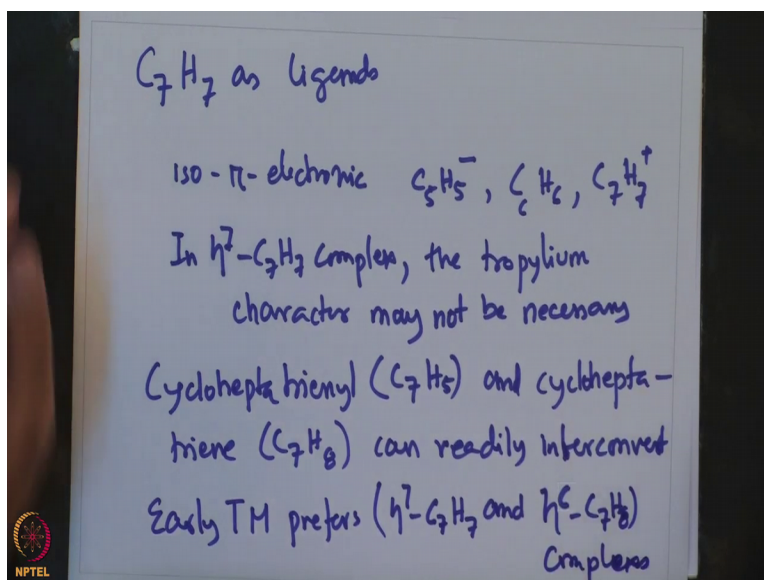 C₇H₇ as ligands
iso-π-electronic C₅H₅⁻, C₆H₆, C₇H₇⁺
In η⁷-C₇H₇ complex, the tropylium
character may not be necessary
Cycloheptatrienyl (C₇H₅) and cyclohepta-
triene (C₇H₈) can readily interconvert
Early TM prefers (η⁷-C₇H₇ and η⁶-C₇H₈)
Complexes
NPTEL